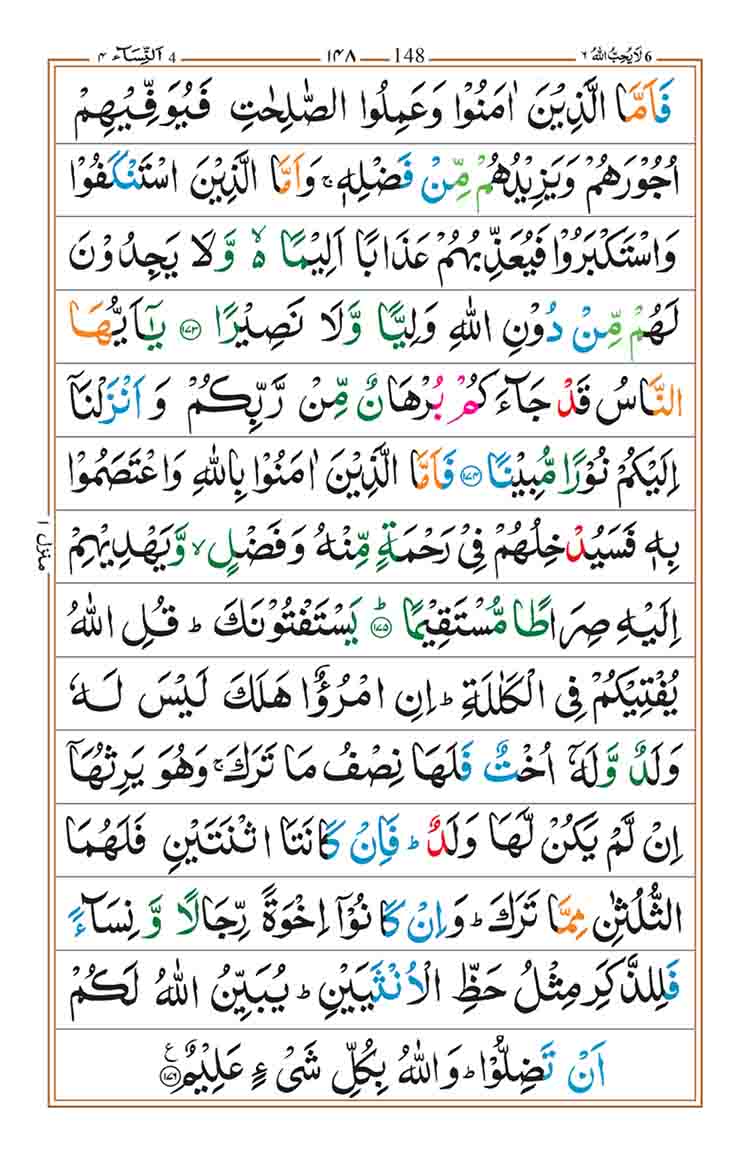 6 لَا یُحِبُّ اللهُ ٦ 148 ۱۴۸ 4 اَلنِّسَآء ۴
فَاَمَّا الَّذِیْنَ اٰمَنُوْا وَعَمِلُوا الصّٰلِحٰتِ فَیُوَفِّیْهِمْ
اُجُوْرَهُمْ وَیَزِیْدُهُمْ مِّنْ فَضْلِهٖ ۚ وَاَمَّا الَّذِیْنَ اسْتَنْكَفُوْا
وَاسْتَكْبَرُوْا فَیُعَذِّبُهُمْ عَذَابًا اَلِیْمًا ۬ۙ وَّلَا یَجِدُوْنَ
لَهُمْ مِّنْ دُوْنِ اللهِ وَلِیًّا وَّلَا نَصِیْرًا ﴿۱۷۳﴾ یٰۤاَیُّهَا
النَّاسُ قَدْ جَآءَكُمْ بُرْهَانٌ مِّنْ رَّبِّكُمْ وَ اَنْزَلْنَاۤ
اِلَیْكُمْ نُوْرًا مُّبِیْنًا ﴿۱۷۴﴾ فَاَمَّا الَّذِیْنَ اٰمَنُوْا بِاللهِ وَاعْتَصَمُوْا
بِهٖ فَسَیُدْخِلُهُمْ فِیْ رَحْمَةٍ مِّنْهُ وَفَضْلٍ ۙ وَّیَهْدِیْهِمْ
اِلَیْهِ صِرَاطًا مُّسْتَقِیْمًا ﴿۱۷۵﴾ؕ یَسْتَفْتُوْنَكَ ؕ قُلِ اللهُ
یُفْتِیْكُمْ فِی الْكَلٰلَةِ ؕ اِنِ امْرُؤٌا هَلَكَ لَیْسَ لَهٗ
وَلَدٌ وَّلَهٗۤ اُخْتٌ فَلَهَا نِصْفُ مَا تَرَكَ ۚ وَهُوَ یَرِثُهَاۤ
اِنْ لَّمْ یَكُنْ لَّهَا وَلَدٌ ؕ فَاِنْ كَانَتَا اثْنَتَیْنِ فَلَهُمَا
الثُّلُثٰنِ مِمَّا تَرَكَ ؕ وَاِنْ كَانُوْۤا اِخْوَةً رِّجَالًا وَّ نِسَآءً
فَلِلذَّكَرِ مِثْلُ حَظِّ الْاُنْثَیَیْنِ ؕ یُبَیِّنُ اللهُ لَكُمْ
اَنْ تَضِلُّوْا ؕ وَاللهُ بِكُلِّ شَیْءٍ عَلِیْمٌ ﴿۱۷۶﴾ ع
منزل ۱